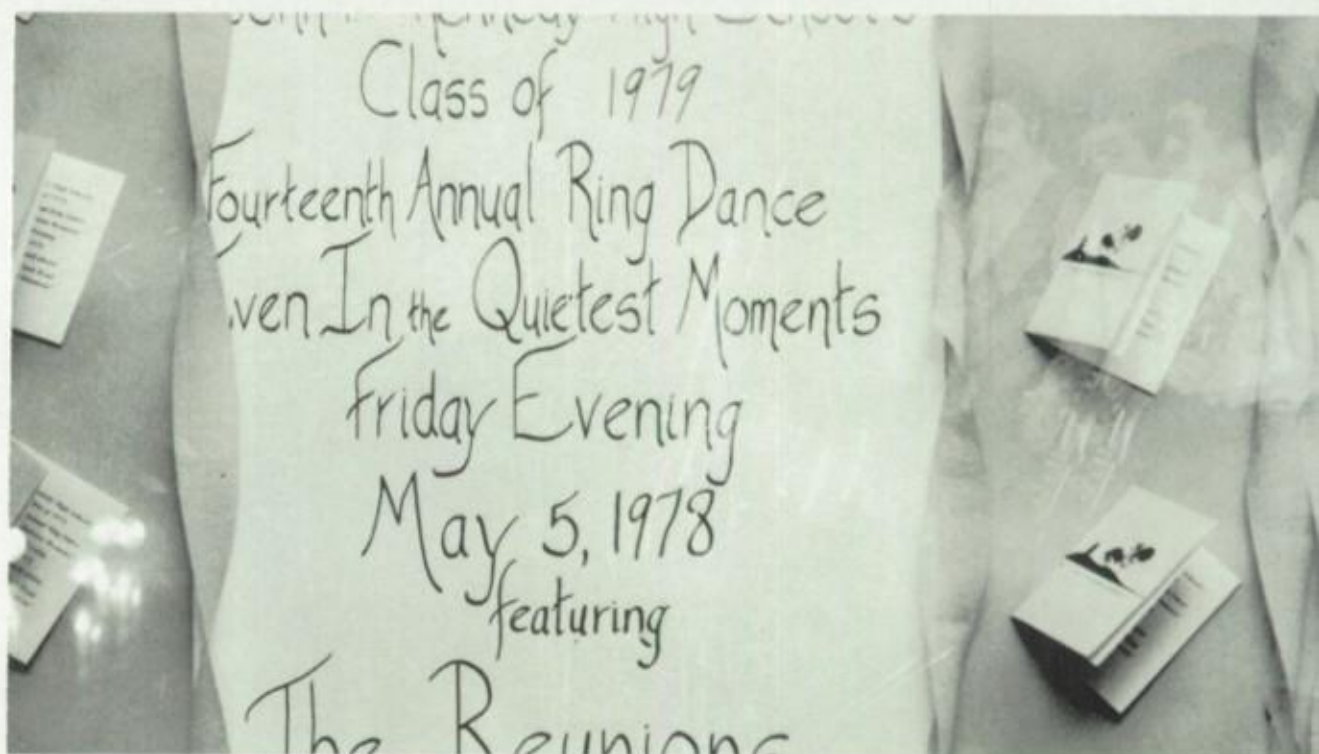 Kennedy High School's
Class of 1979
Fourteenth Annual Ring Dance
ven In the Quietest Moments
Friday Evening
May 5, 1978
featuring
The Reunions